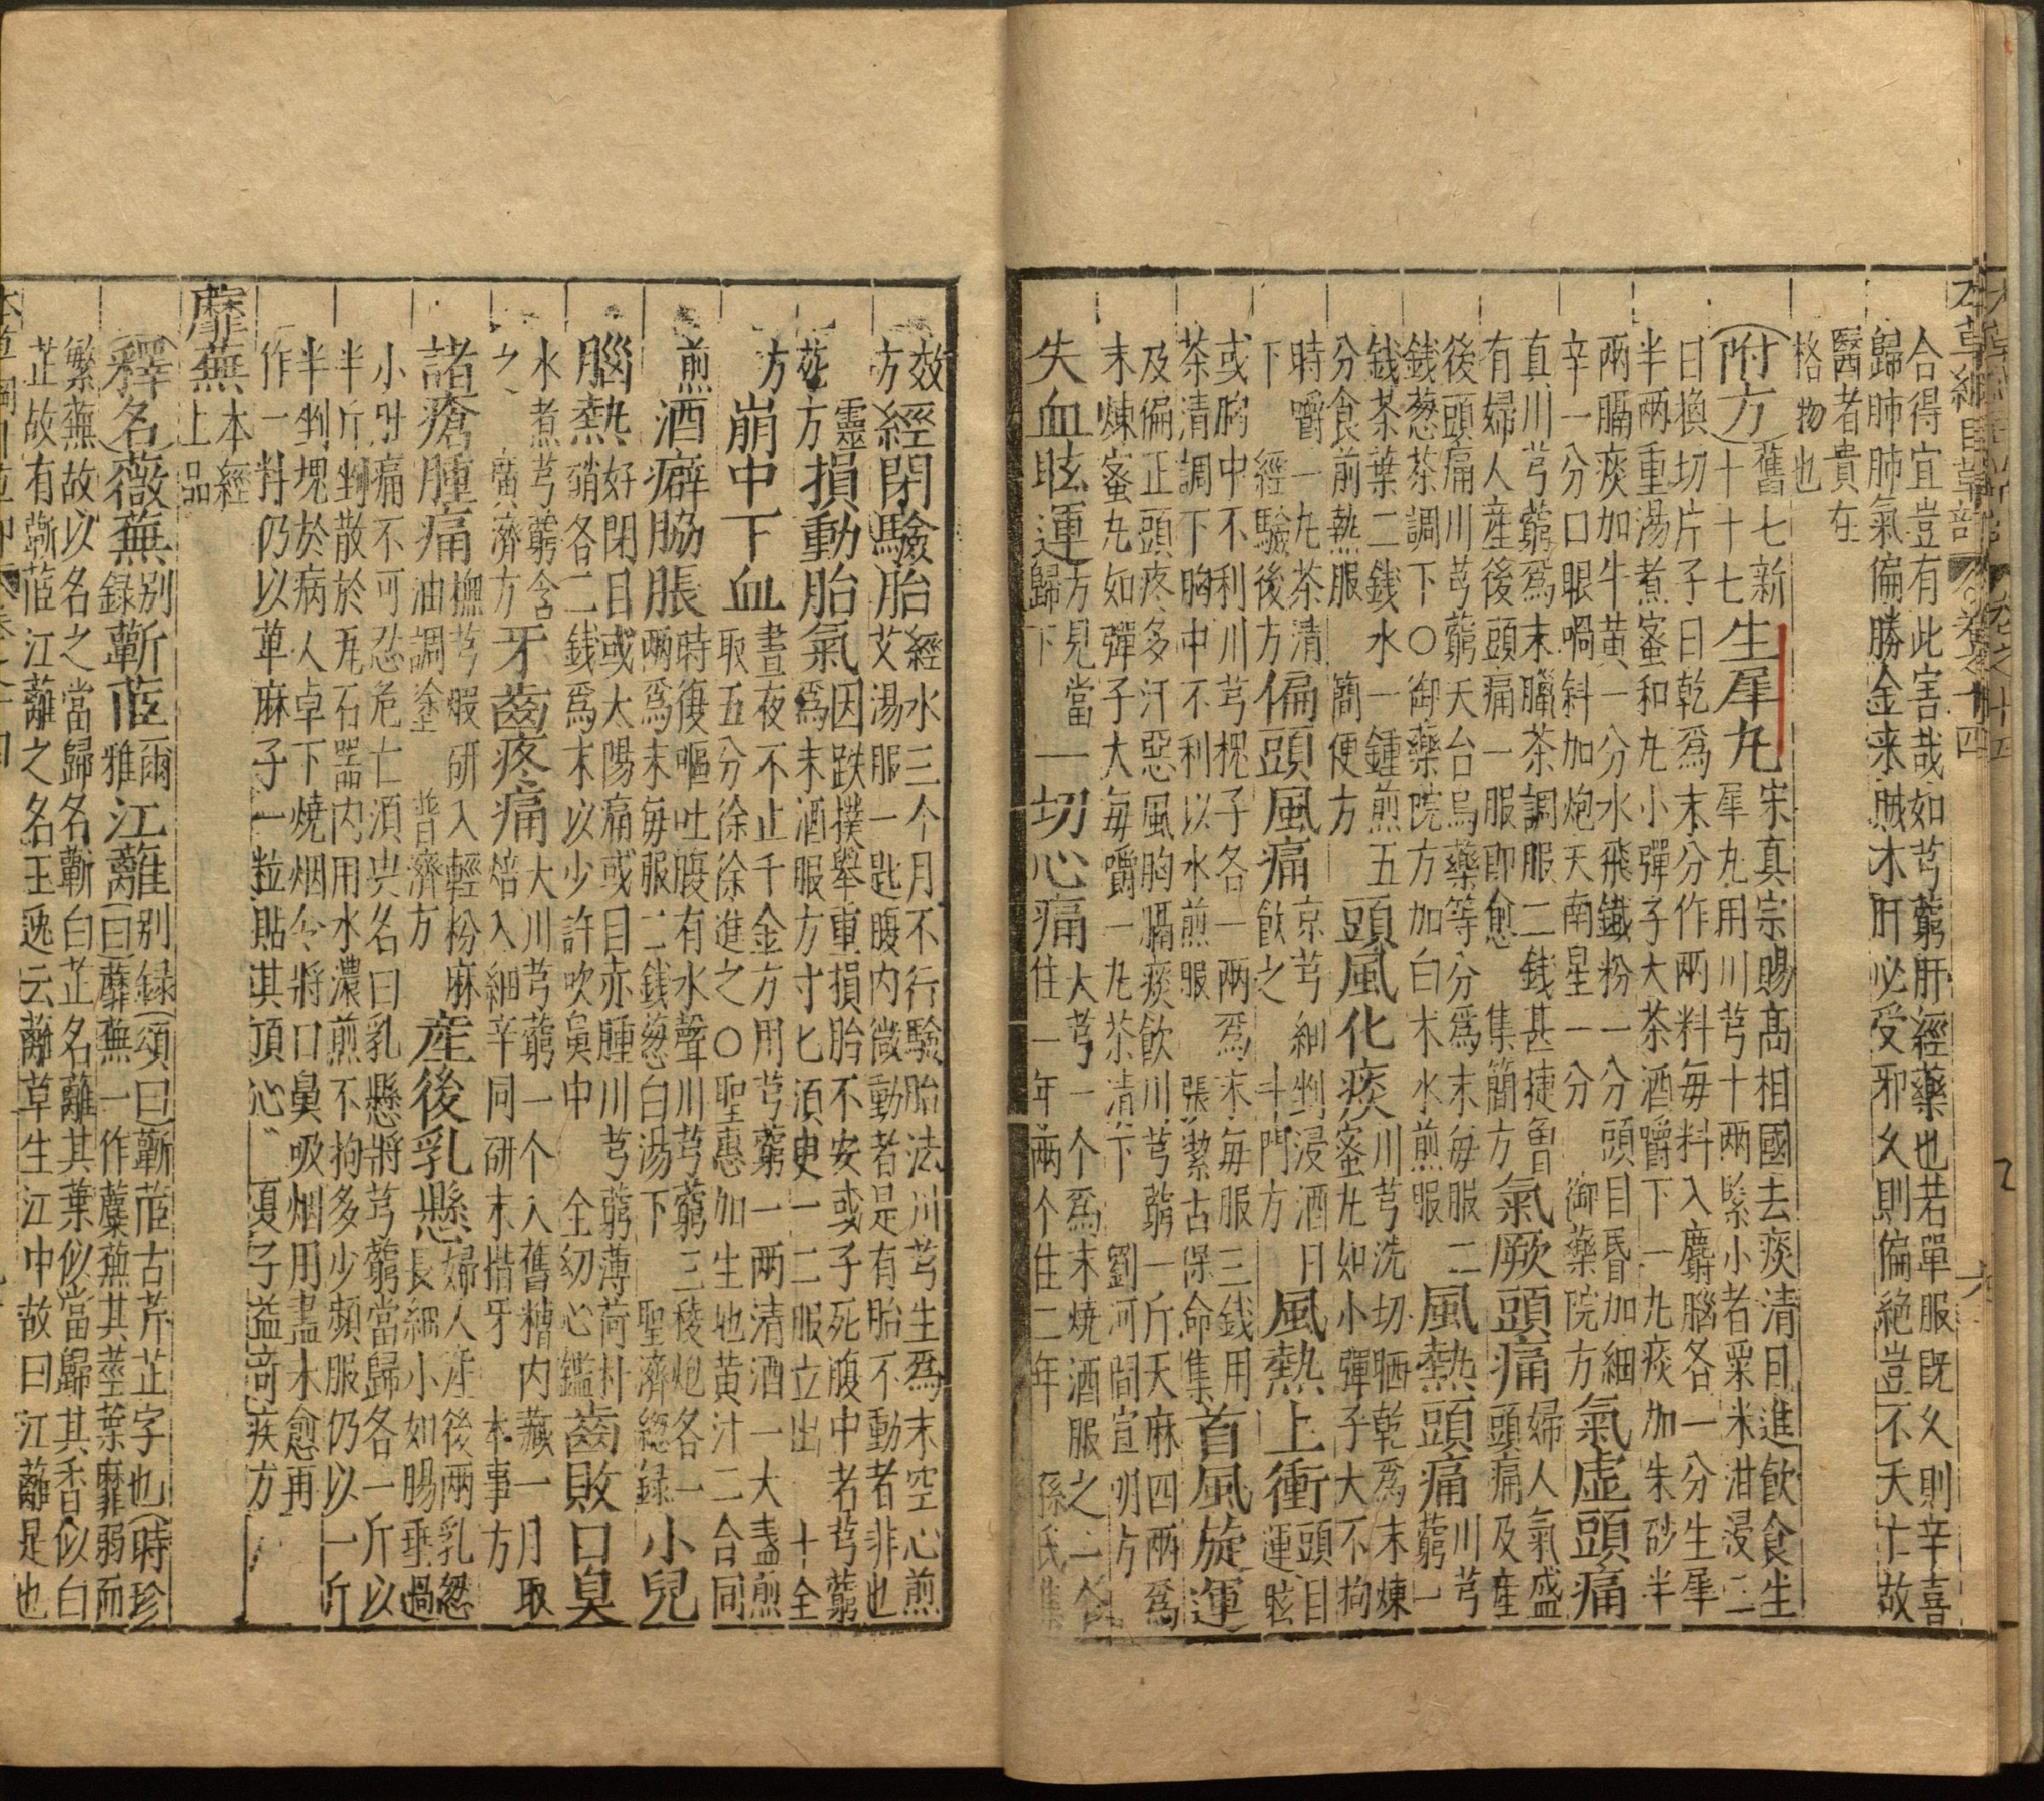 合得宜豈有此害哉如芎藭肝經藥也若單服既久則辛喜
歸肺肺氣偏勝金来賊木肝必受邪久則偏絕豈不夭亡故
醫者貴在
格物也
附方舊七新十十七生犀丸宋真宗賜高相國去痰清目進飲食生犀丸用川芎十兩緊小者粟米泔浸二
日換切片子日乾爲末分作兩料每料入麝腦各一分生犀
半兩重湯煮蜜和丸小彈子大茶酒嚼下一丸痰加朱砂半
兩膈痰加牛黄一分水飛鐵粉一分頭目昏加細
辛一分口眼喎斜加炮天南星一分 御藥院方 氣虛頭痛
真川芎藭爲末臘茶調服二錢甚捷曾
有婦人産後頭痛一服即愈 集簡方 氣厥頭痛婦人氣盛頭痛及産
後頭痛川芎藭天台烏藥等分爲末每服二
錢葱茶調下○御藥院方加白术水煎服 風熱頭痛川芎藭一
錢茶葉二錢水一鍾煎五
分食前熱服 簡便方 頭風化痰川芎洗切晒乾爲末煉蜜丸如小彈子大不拘
時嚼一丸茶清
下 經驗後方 偏頭風痛京芎細剉浸酒日飲之 斗門方 風熱上衝頭目運眩
或胸中不利川芎槐子各一兩爲末每服三錢用
茶清調下胸中不利以水煎服 張潔古保命集 首風旋運
及偏正頭疼多汗惡風胸膈痰飲川芎藭一斤天麻四兩爲
末煉蜜丸如彈子大每嚼一丸茶清下 劉河間宣明方
失血眩運方見當歸下 一切心痛大芎一个爲末燒酒服之一个住一年兩个住二年 孫氏集
本草綱目草部 卷之十四 六
效方 經閉驗胎經水三个月不行驗胎法川芎生爲末空心煎艾湯服一匙腹内微動者是有胎不動者非也
靈苑方 損動胎氣因跌撲舉重損胎不安或子死腹中者芎藭爲末酒服方寸匕須臾一二服立出 十全
方 崩中下血晝夜不止千金方用芎藭一兩清酒一大盞煎取五分徐徐進之○聖惠加生地黄汁二合同
煎 酒癖脇脹時復嘔吐腹有水聲川芎藭三稜炮各一兩爲末每服二錢葱白湯下 聖濟總録 小兒
腦熱好閉目或太陽痛或目赤腫川芎藭薄荷朴硝各二錢爲末以少許吹鼻中 全幼心鑑 齒敗口臭
水煮芎藭含之 廣濟方 牙齒疼痛大川芎藭一个入舊糟内藏一月取焙入細辛同研末揩牙 本事方
諸瘡腫痛撫芎煆研入輕粉麻油調塗 普濟方 産後乳懸婦人産後兩乳忽長細小如腸垂過
小肚痛不可忍危亡須臾名曰乳懸將芎藭當歸各一斤以
半斤剉散於瓦石器内用水濃煎不拘多少頻服仍以一斤
半剉塊於病人卓下燒烟令將口鼻吸烟用盡未愈再
作一料仍以萆麻子一粒貼其頂心 夏子益奇疾方
蘼蕪本經上品
釋名薇蕪别録蘄茝爾雅江蘺别録頌曰蘄茝古芹芷字也時珍曰蘼蕪一作蘪蕪其莖葉靡弱而
繁蕪故以名之當歸名蘄白芷名蘺其葉似當歸其香似白
芷故有蘄茝江蘺之名王逸云蘺草生江中故曰江蘺是也